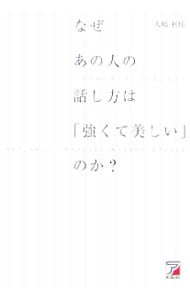 大嶋 利佳
なぜ
あの人の
話し方は
「強くて美しい」
のか?